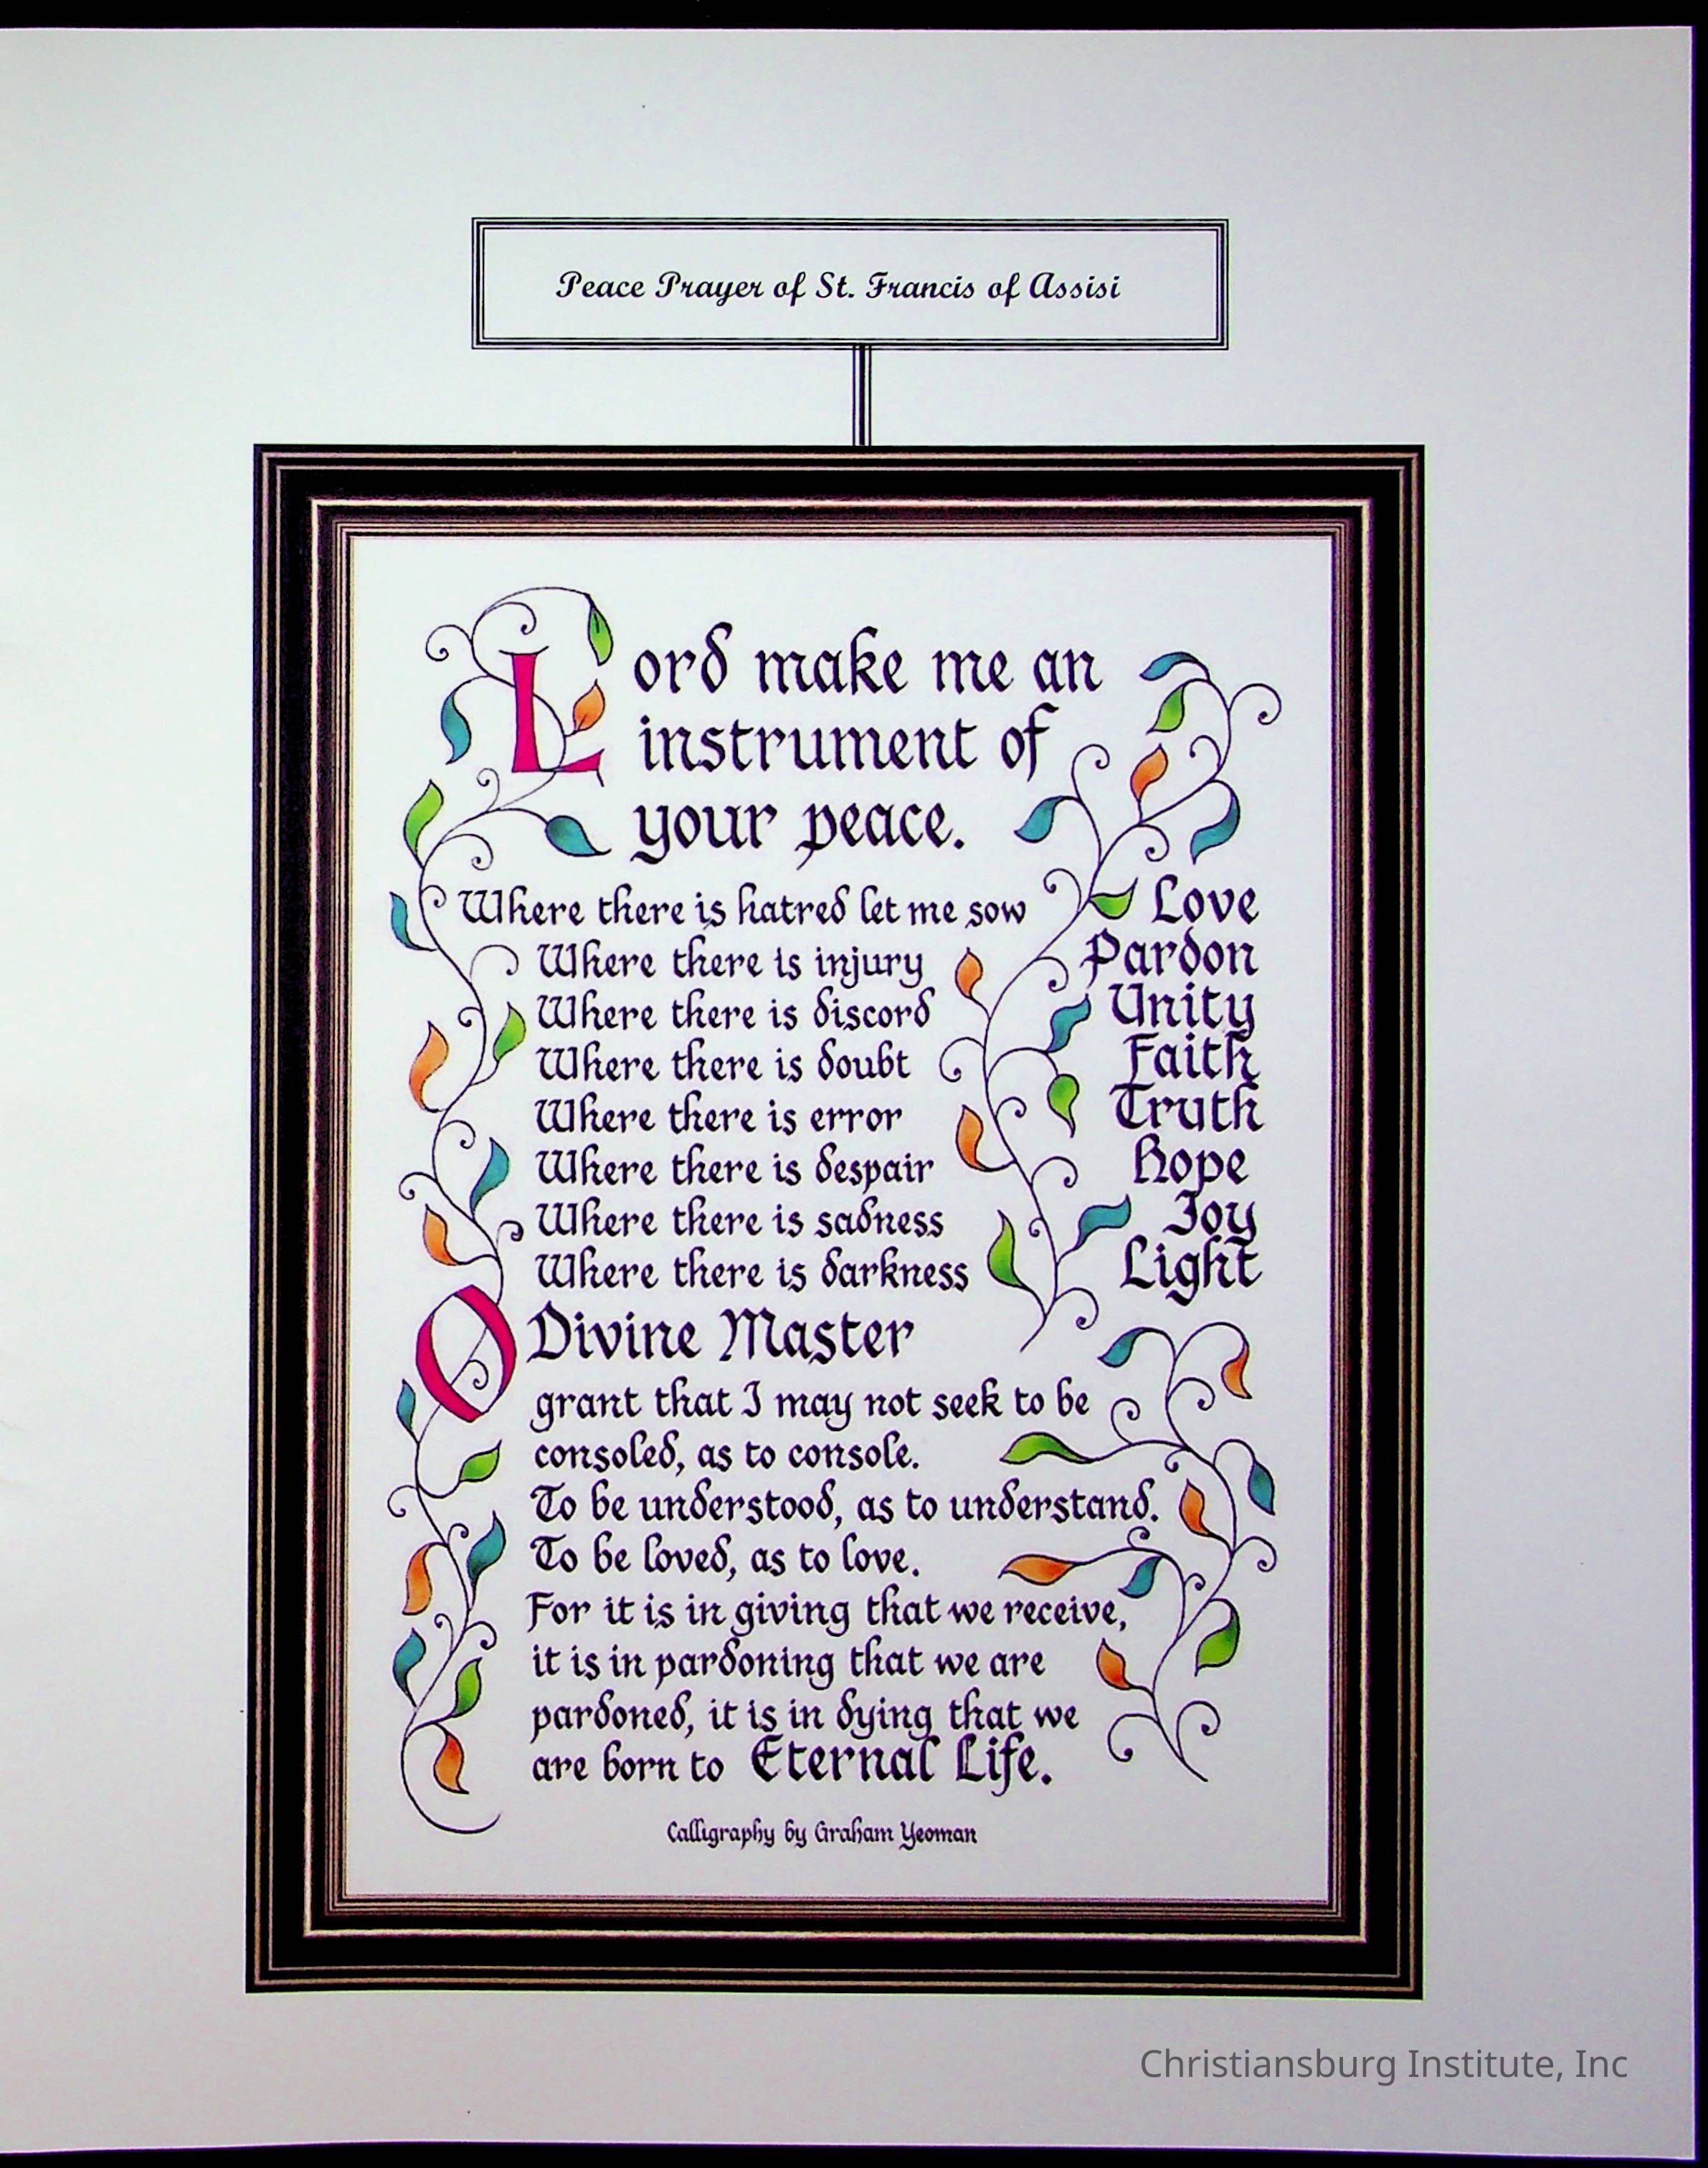 Peace Prayer of St. Francis of Assisi
Lord make me an
instrument of
your peace.
Where there is hatred let me sow Love
Where there is injury Pardon
Where there is discord Unity
Where there is doubt Faith
Where there is error Truth
Where there is despair Hope
Where there is sadness Joy
Where there is darkness Light
O Divine Master
grant that I may not seek to be
consoled, as to console.
To be understood, as to understand.
To be loved, as to love.
For it is in giving that we receive,
it is in pardoning that we are
pardoned, it is in dying that we
are born to Eternal Life.
Calligraphy by Graham Yeoman
Christiansburg Institute, Inc